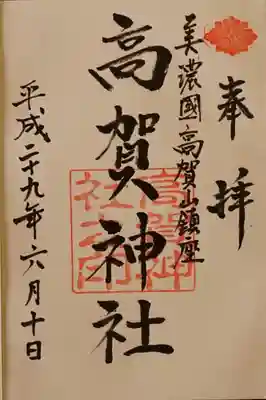 奉拝
美濃國高賀山鎮座
高賀神社
高賀神社之印
平成二十九年六月十日